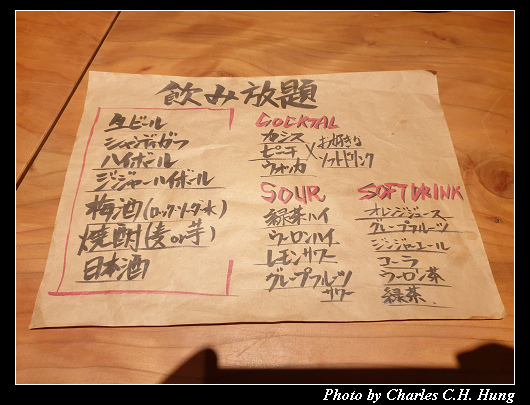 飲み放題
生ビール
シャンディガフ
ハイボール
ジンジャーハイボール
梅酒(ロック・ソーダ・水)
焼酎(麦or芋)
日本酒
COCKTAL
カシス
ピーチ
ウォッカ
X お好きな
ソフトドリンク
SOUR
緑茶ハイ
ウーロンハイ
レモンサワー
グレープフルーツ
サワー
SOFT DRINK
オレンジジュース
グレープフルーツ
ジンジャエール
コーラ
ウーロン茶
緑茶
Photo by Charles C.H. Hung